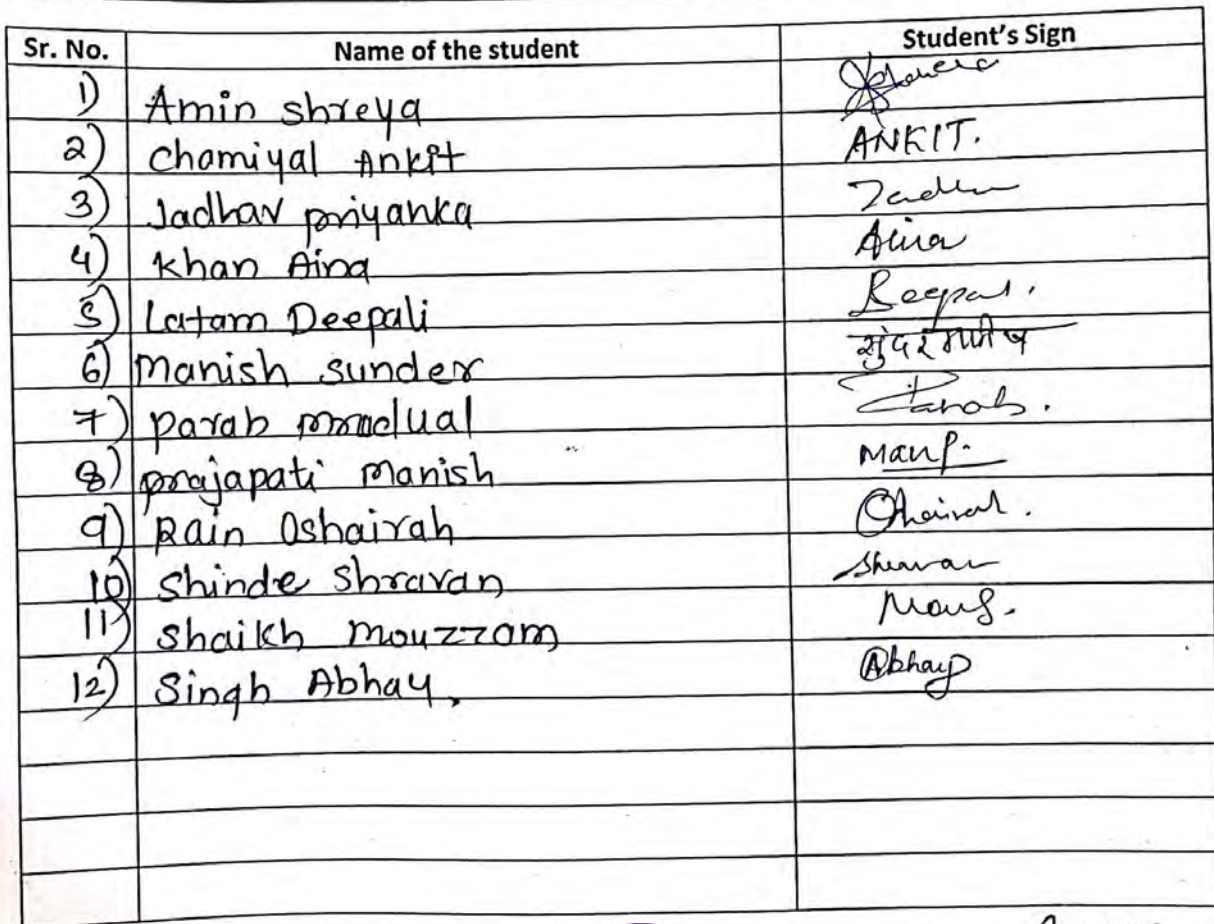 Sr. No. Name of the student Student's Sign
1) Amin shreya
2) Chamiyal Ankit ANKIT.
3) Jadhav priyanka
4) Khan Aina Aina
5) Latam Deepali
6) Manish sunder सुंदर मनीष
7) parab Parab.
8) prajapati Manish
9) Rain Oshairah
10) Shinde Shravan
11) Shaikh Mouzzam
12) Singh Abhay. Abhay